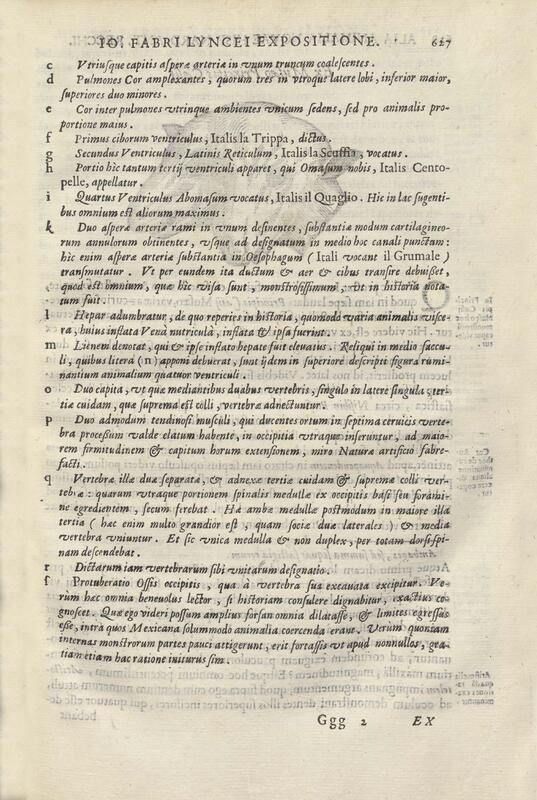 IO. FABRI LYNCEI EXPOSITIONE. 627
c Vtriusque capitis asperæ arteriæ in vnum truncum coalescentes.
d Pulmones Cor amplexantes, quorum tres in vtroque latere lobi, inferior maior,
superiores duo minores.
e Cor inter pulmones vtrinque ambientes vnicum sedens, sed pro animalis pro-
portione maius.
f Primus ciborum ventriculus, Italis la Trippa, dictus.
g Secundus Ventriculus, Latinis Reticulum, Italis la Scuffia, vocatus.
h Portio hîc tantum tertij ventriculi apparet, qui Omasum nobis, Italis Cento-
pelle, appellatur.
i Quartus Ventriculus Abomasum vocatus, Italis il Quaglio. Hic in lac sugenti-
bus omnium est aliorum maximus.
k Duo asperæ arteriæ rami in vnum desinentes, substantiæ modum cartilagineo-
rum annulorum obtinentes, vsque ad designatum in medio hoc canali punctum:
hîc enim asperæ arteriæ substantia in Oesophagum (Itali vocant il Grumale)
transmutatur. Vt per eundem ita ductum & aer & cibus transire debuisset,
quod est omnium, quæ hîc visa sunt, monstrosissimum; vt in historia nota-
tum fuit.
l Hepar adumbratur, de quo reperies in historia, quomodo varia animalis visce-
ra, huius inflata Venâ nutriculâ, inflata & ipsa fuerint.
m Lienem denotat, qui & ipse inflato hepate fuit eleuatus. Reliqui in medio saccu-
li, quibus litera (n) apponi debuerat, sunt ijdem in superiore descripti figura rumi-
nantium animalium quatuor ventriculi.
o Duo capita, vt quæ mediantibus duabus vertebris, singulo in latere singula, ter-
tiæ cuidam, quæ suprema est colli, vertebræ adnectuntur.
p Duo admodum tendinosi musculi, qui ducentes ortum in septima ceruicis verte-
bra processum valde elatum habente, in occipitia vtraque inseruntur, ad maio-
rem firmitudinem & capitum horum extensionem, miro Naturæ artificio fabre-
facti.
q Vertebræ illæ duæ separatæ, & adnexæ tertiæ cuidam & supremæ colli ver-
tebræ: quarum vtraque portionem spinalis medullæ ex occipitis basi seu forami-
ne egredientem, secum ferebat. Hæ ambæ medullæ postmodum in maiore illa
tertia (hæc enim multo grandior est, quam sociæ duæ laterales) & media
vertebra vniuntur. Et sic vnica medulla & non duplex, per totam dorsi spi-
nam descendebat.
r Dictarum iam vertebrarum sibi vnitarum designatio.
ſ Protuberatio Ossis occipitis, qua à vertebra sua excauata excipitur. Ve-
rum hæc omnia beneuolus lector, si historiam consulere dignabitur, exactius co-
gnoscet. Quæ ego videri possum amplius forsan omnia dilatasse, & limites egressus
esse, intrà quos Mexicana solummodo animalia coercenda erant. Verum quoniam
internas monstrorum partes pauci attigerunt, erit fortassis vt apud nonnullos, gra-
tiam etiam hac ratione initurus sim.
Ggg 2 EX